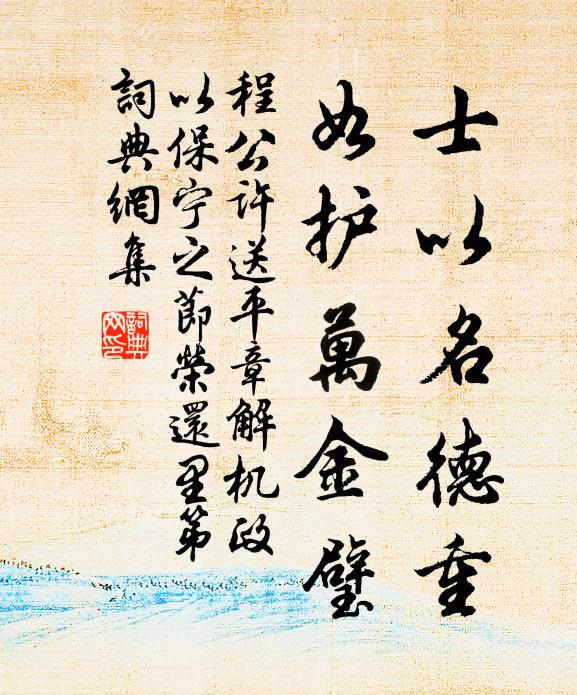 士以名德重
如护萬金璧
程公许送平章解机政
以保宁之節榮還里第
詞典網集
詞典
网印